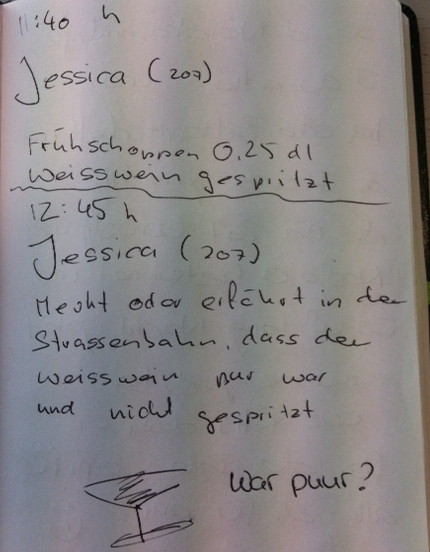 11:40 h
Jessica (207)
Frühschoppen 0,25 dl
Weisswein gespritzt
12:45 h
Jessica (207)
Merkt oder erfährt in der
Strassenbahn, dass der
Weisswein pur war
und nicht gespritzt
War puur?